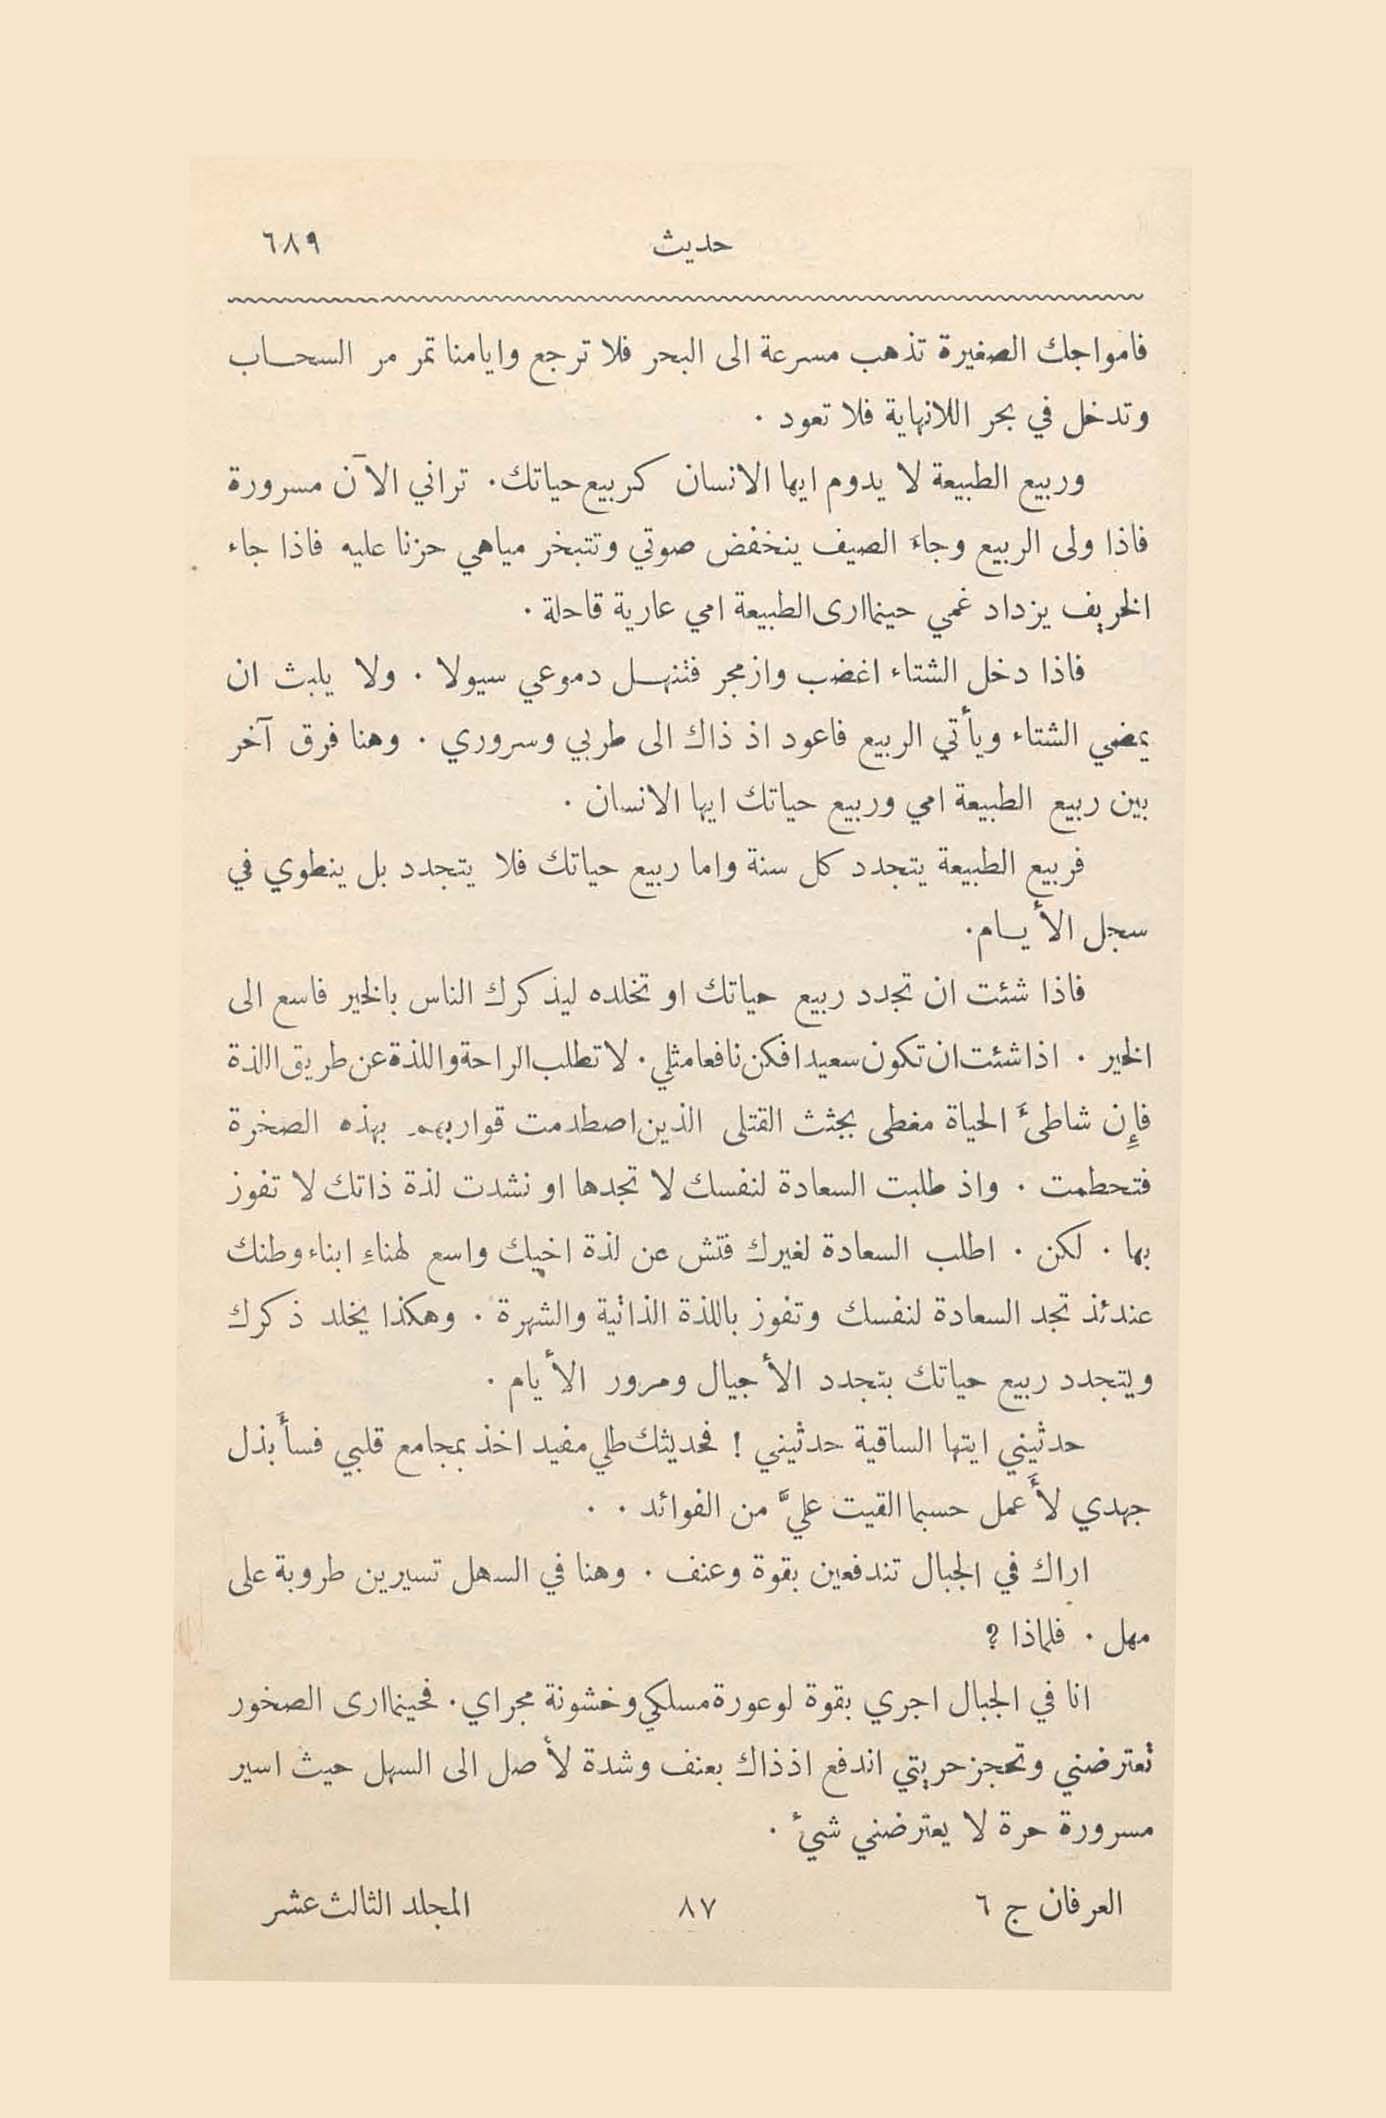 حديث ٦٨٩
فامواجك الصغيرة تذهب مسرعة الى البحر فلا ترجع وايامنا تمر مر السحــاب
وتدخل في بحر اللانهاية فلا تعود .
وربيع الطبيعة لا يدوم ايها الانسان كربيع حياتك . تراني الآن مسرورة
فاذا ولى الربيع وجاءَ الصيف ينخفض صوتي وتتبخر مياهي حزنا عليه فاذا جاء
الخريف يزداد غمي حينما ارى الطبيعة امي عارية قاحلة .
فاذا دخل الشتاء اغضب وازمجر فتنهــل دموعي سيولا . ولا يلبث ان
يمضي الشتاء ويأتي الربيع فاعود اذ ذاك الى طربي وسروري . وهنا فرق آخر
بين ربيع الطبيعة امي وربيع حياتك ايها الانسان .
فربيع الطبيعة يتجدد كل سنة واما ربيع حياتك فلا يتجدد بل ينطوي في
سجل الأيــام .
فاذا شئت ان تجدد ربيع حياتك او تخلده ليذكرك الناس بالخير فاسع الى
الخير . اذا شئت ان تكون سعيدا فكن نافعا مثلي . لا تطلب الراحة واللذة عن طريق اللذة
فإِن شاطئَ الحياة مغطى بجثث القتلى الذين اصطدمت قواربهم بهذه الصخرة
فتحطمت . واذ طلبت السعادة لنفسك لا تجدها او نشدت لذة ذاتك لا تفوز
بها . لكن . اطلب السعادة لغيرك فتش عن لذة اخيك واسع لهناءِ ابناء وطنك
عندئذ تجد السعادة لنفسك وتفوز باللذة الذاتية والشهرة . وهكذا يخلد ذكرك
ويتجدد ربيع حياتك بتجدد الأجيال ومرور الأيام .
حدثيني ايتها الساقية حدثيني ! فحديثك طلي مفيد اخذ بمجامع قلبي فسأَبذل
جهدي لأَعمل حسبما القيت عليَّ من الفوائد . .
اراك في الجبال تندفعين بقوة وعنف . وهنا في السهل تسيرين طروبة على
مهل . فلماذا ؟
انا في الجبال اجري بقوة لوعورة مسلكي وخشونة مجراي . فحينما ارى الصخور
تعترضني وتحجز حريتي اندفع اذ ذاك بعنف وشدة لأصل الى السهل حيث اسير
مسرورة حرة لا يعترضني شيءٌ .
العرفان ج ٦ ٨٧ المجلد الثالث عشر